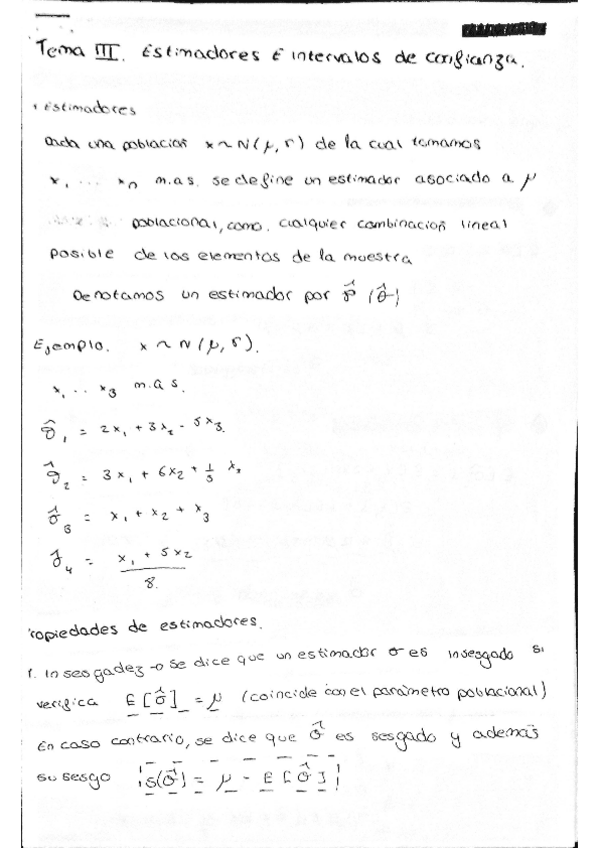 Tema III. Estimadores E intervalos de confianza.
Estimadores
Dada una poblacion x ~ N(μ, σ) de la cual tomamos
x₁ ... xₙ m.a.s. se define un estimador asociado a μ
poblacional, como cualquier combinación lineal
posible de los elementos de la muestra
Denotamos un estimador por (θ̂)
Ejemplo. x ~ N(μ, σ).
x₁ ... x₃ m.a.s.
θ̂₁ = 2x₁ + 3x₂ - 5x₃
θ̂₂ = 3x₁ + 6x₂ + x₃
θ̂₃ = x₁ + x₂ + x₃
θ̂₄ = x₁ + 5x₂
8.
ropiedades de estimadores.
1. Insesgadez → se dice que un estimador θ es insesgado si
verifica E[θ̂] = μ (coincide con el parámetro poblacional)
En caso contrario, se dice que θ̂ es sesgado y además
su sesgo S(θ̂) = μ - E[θ̂]